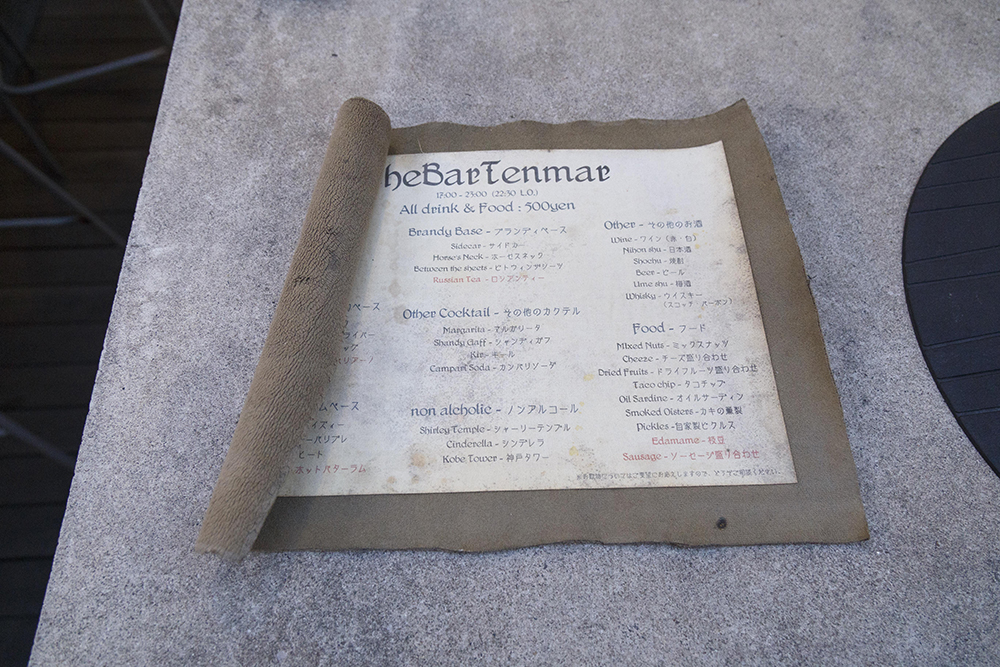 heBarTenmar
17:00 - 23:00 (22:30 L.O.)
All drink & Food : 500yen
ベース
ムベース
ヒート
ホットバターラム
Brandy Base - ブランディベース
Sidecar - サイドカー
Horse's Neck - ホーセスネック
Between the sheets - ビトウィンザシーツ
Russian Tea - ロシアンティー
Other Cocktail - その他のカクテル
Margarita - マルガリータ
Shandy Gaff - シャンディガフ
Kir - キール
Campari Soda - カンパリソーダ
non alcholic - ノンアルコール
Shirley Temple - シャーリーテンプル
Cinderella - シンデレラ
Kobe Tower - 神戸タワー
Other - その他のお酒
Wine - ワイン (赤・白)
Nihon shu - 日本酒
Shochu - 焼酎
Beer - ビール
Ume shu - 梅酒
Whisky - ウイスキー
(スコッチ・バーボン)
Food - フード
Mixed Nuts - ミックスナッツ
Cheeze - チーズ盛り合わせ
Dried Fruits - ドライフルーツ盛り合わせ
Taco chip - タコチップ
Oil Sardine - オイルサーディン
Smoked Oisters - カキの薫製
Pickles - 自家製ピクルス
Edamame - 枝豆
Sausage - ソーセージ盛り合わせ